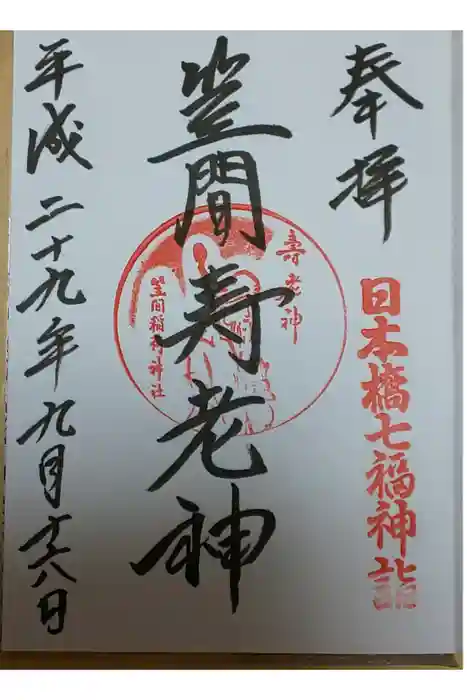 奉拝
日本橋七福神詣
笠間寿老神
寿老神
笠間稲荷神社
平成二十九年九月十八日